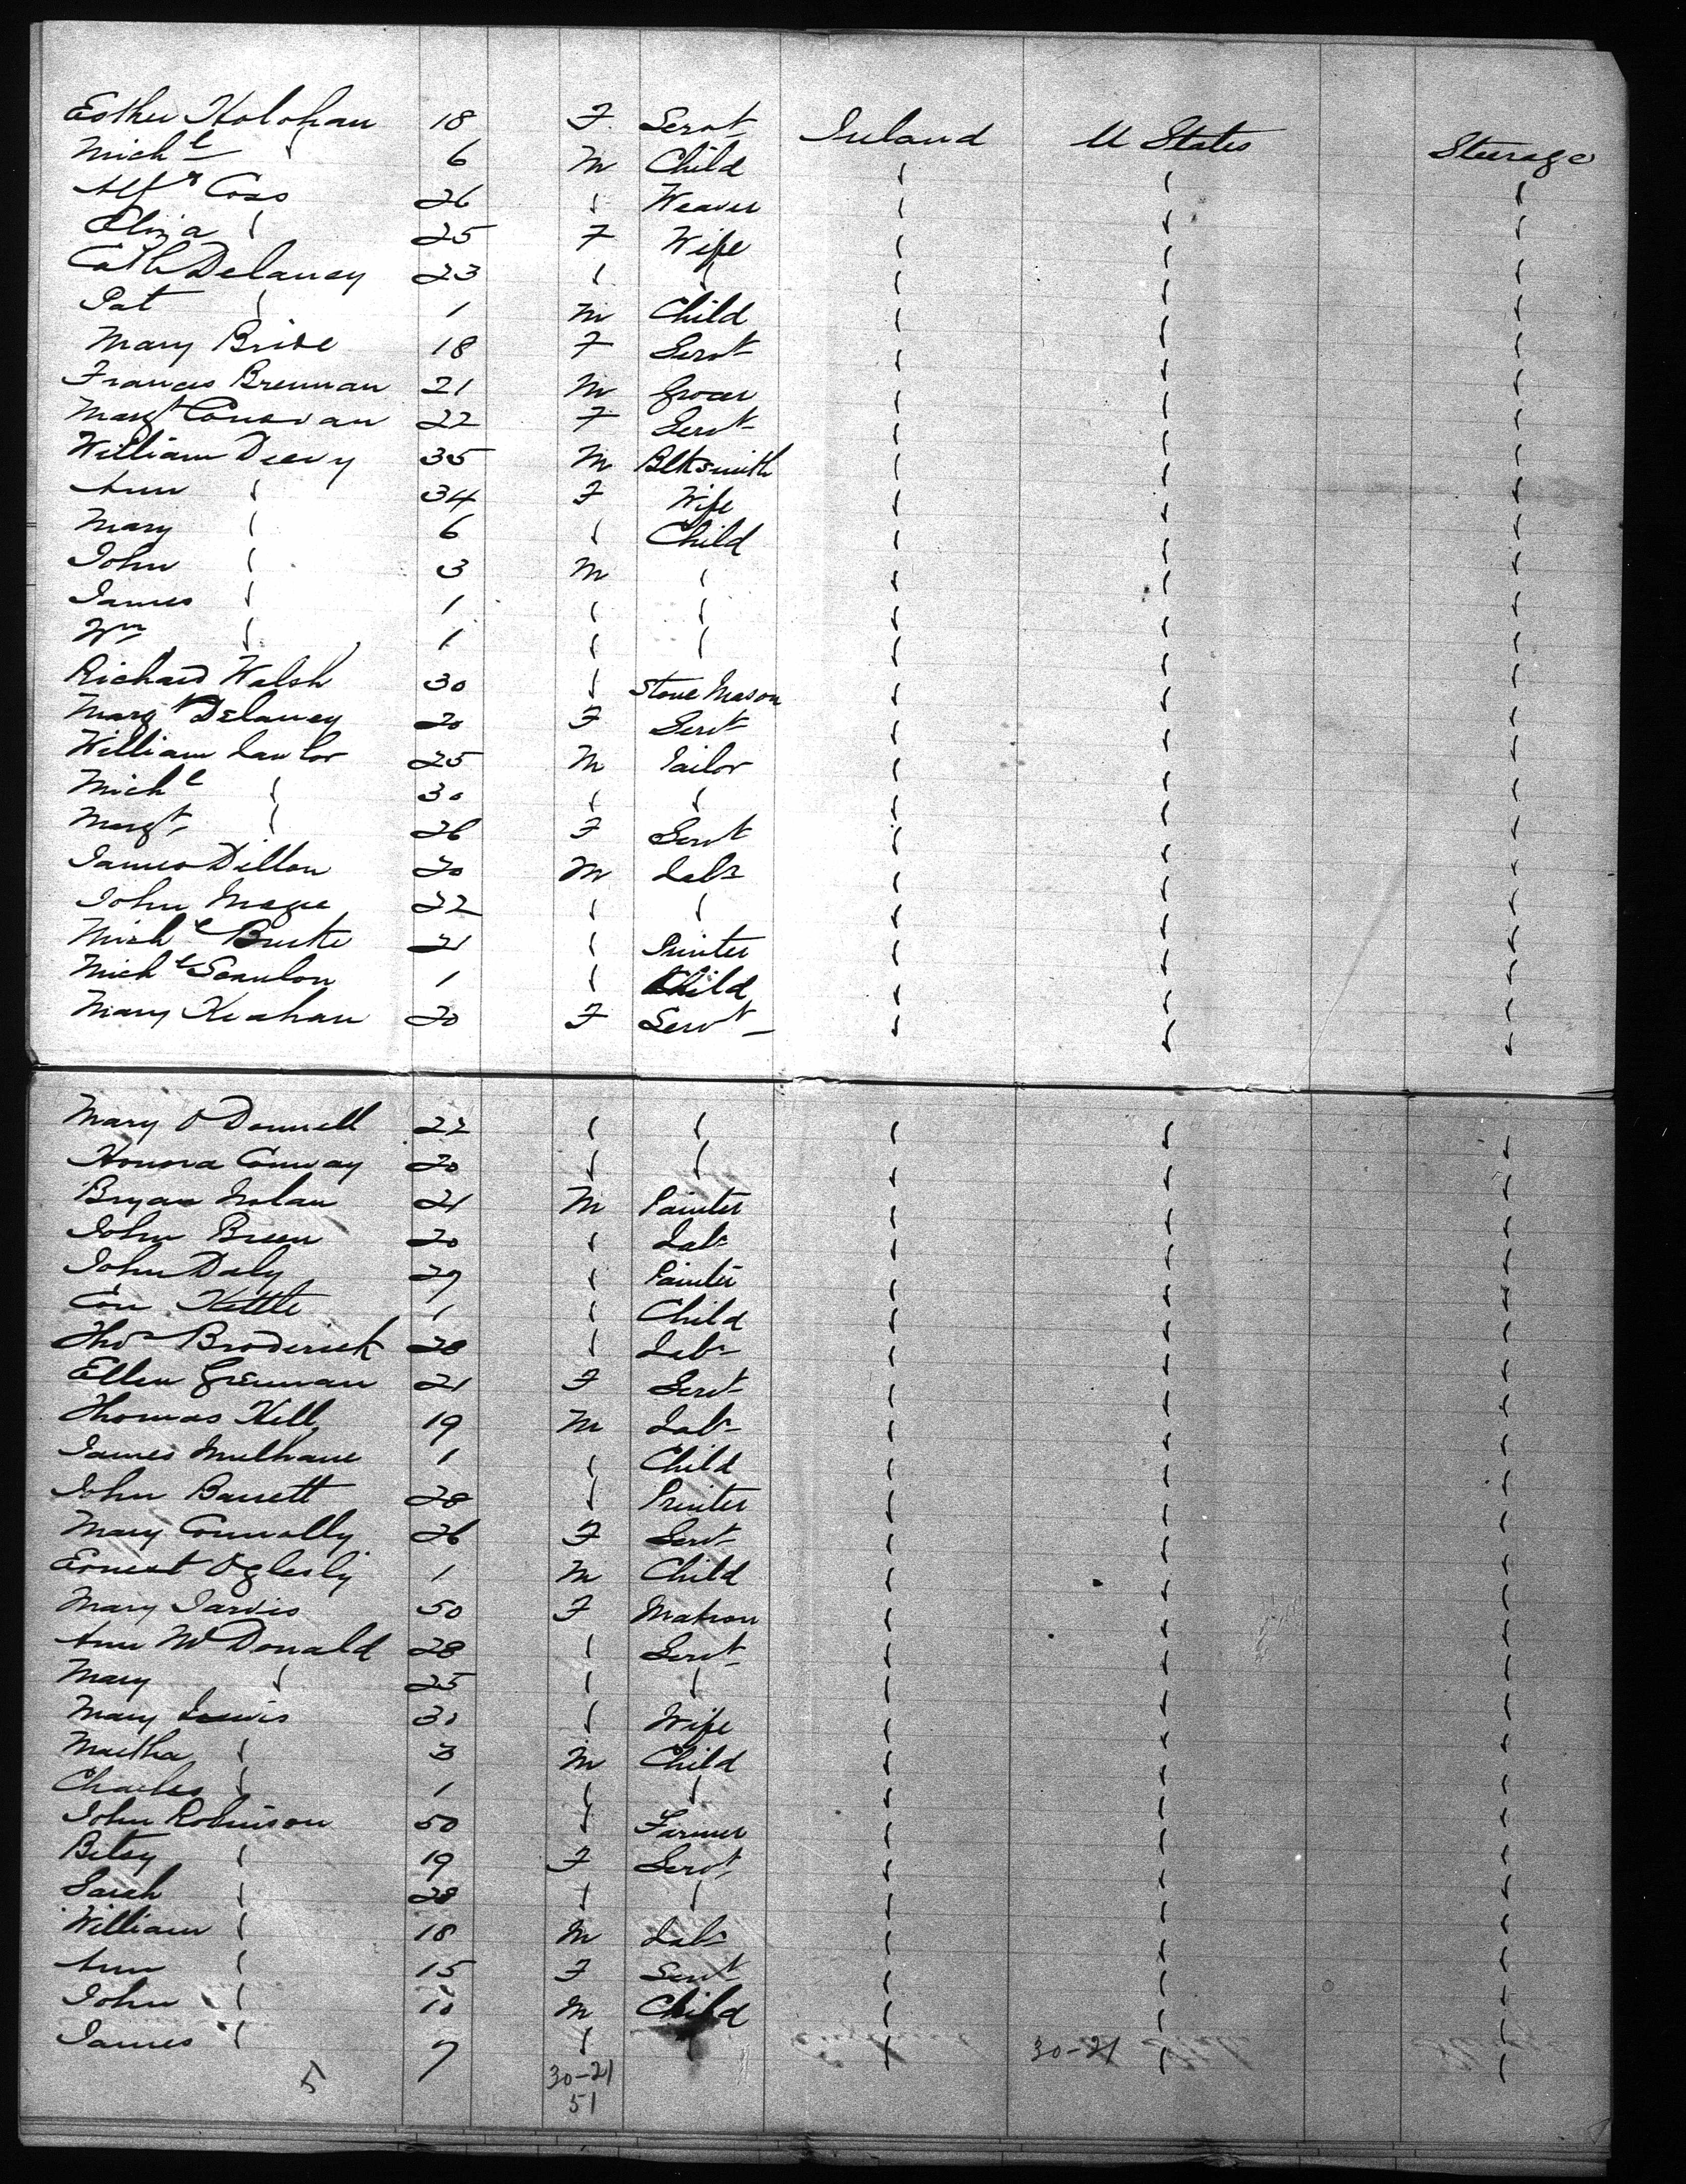 Esther Holohan 18 F Servt Ireland U States Steerage
Michl " 6 M Child " " "
Alfd Coss 26 " Weaver " " "
Eliza " 25 F Wife " " "
Cath Delaney 23 " " " " "
Pat " 1 M Child " " "
Mary Bride 18 F Servt " " "
Frances Brennan 21 M Grocer " " "
Margt Conovan 22 F Servt " " "
William Deevy 35 M Blksmith " " "
Ann " 34 F Wife " " "
Mary " 6 " Child " " "
John " 3 M " " " "
James " 1 " " " " "
Wm " 1 " " " " "
Richard Walsh 30 " Stone Mason " " "
Margt Delaney 20 F Servt " " "
William Lawlor 25 M Tailor " " "
Michl " 30 " " " " "
Margt " 26 F Servt " " "
James Dillon 20 M Labr " " "
John Magee 22 " " " " "
Michl Burke 21 " Printer " " "
Michl Scanlon 1 " Child " " "
Mary Keahan 20 F Servt " " "
Mary O'Donnell 22 " " " " "
Honora Conway 20 " " " " "
Bryan Nolan 21 M Painter " " "
John Breen 20 " Labr " " "
John Daly 29 " Painter " " "
Con Kettle 1 " Child " " "
Thos Broderick 28 " Labr " " "
Ellen Grennan 21 F Servt " " "
Thomas Hill 19 M Labr " " "
James Mulhane 1 " Child " " "
John Barrett 28 " Printer " " "
Mary Connolly 26 F Servt " " "
Ernest Oglesby 1 M Child " " "
Mary Jarvis 50 F Matron " " "
Ann McDonald 28 " Servt " " "
Mary " 25 " " " " "
Mary Lewis 30 " Wife " " "
Martha " 3 M Child " " "
Charles " 1 " " " " "
John Robinson 50 " Farmer " " "
Betsy " 19 F Servt " " "
Sarah " 28 " " " " "
William " 18 M Labr " " "
Ann " 15 F Servt " " "
John " 10 M Child " " "
James " 7 " " " 30-21 " "
5 30-21
51